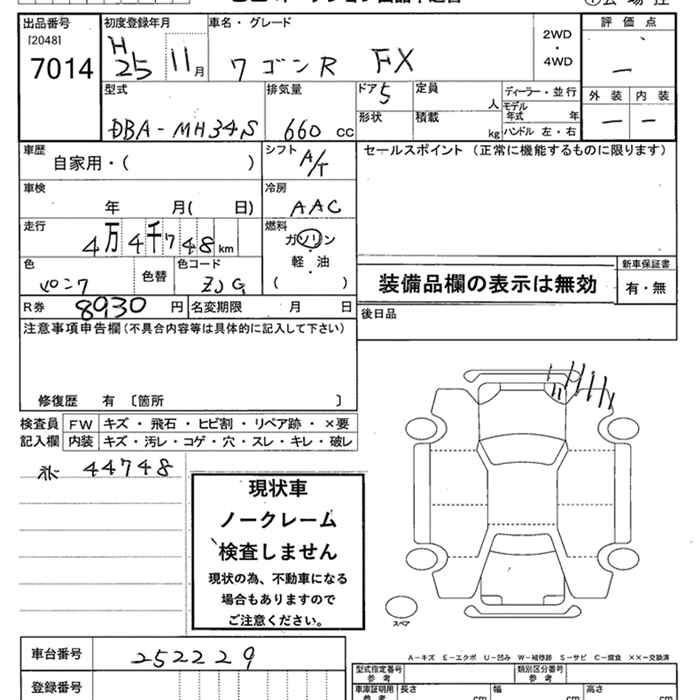 出品番号 初度登録年月 車名・グレード 評価点
[2048] H 2WD
7014 25 11月 ワゴンR FX ・ 4WD —
型式 排気量 ドア 5 定員 人 ディーラー・並行 外装 内装
DBA-MH34S 660 cc 形状 積載 kg モデル年式 年 — —
ハンドル 左・右
車歴 シフト セールスポイント (正常に機能するものに限ります)
自家用・( ) A/T
車検 冷房
年 月( 日) AAC
走行 燃料
4万4千748km ガソリン
色 色替 色コード 軽・油 新車保証書
ZJG ( ) 装備品欄の表示は無効 有・無
R券 8930円 名変期限 月 日 後日品
注意事項申告欄(不具合内容等は具体的に記入して下さい)
修復歴 有 〔箇所 〕
検査員 FW キズ・飛石・ヒビ割・リペア跡・×要
記入欄 内装 キズ・汚レ・コゲ・穴・スレ・キレ・破レ
44748
現状車
ノークレーム
検査しません
現状の為、不動車になる
場合もありますので
ご注意ください。
スペア
A-キズ E-エクボ U-凹み W-補修跡 S-サビ C-腐食 ××-交換済
車台番号 252229 型式指定番号 参考 類別区分番号 参考
登録番号 車庫証明用 参考 長さ cm 幅 cm 高さ cm